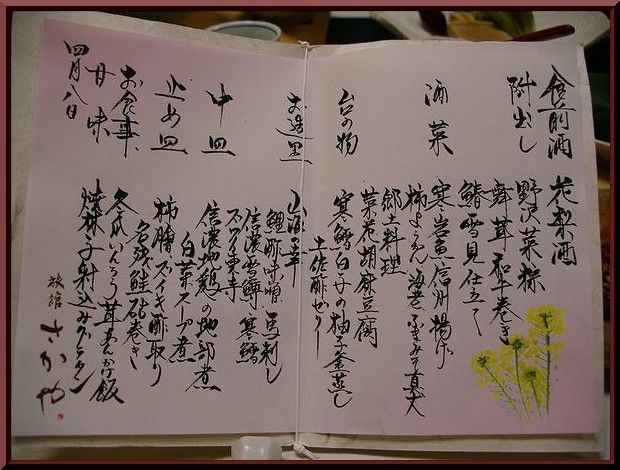 食前酒 花梨酒
附出し 野沢菜粽
舞茸和牛巻き
鰆雪見仕立て
酒菜 寒岩魚信州揚げ
柿ようかん 海老
郷土料理
菜花胡麻豆腐
台の物 寒鱈白子の柚子釜蒸し
土佐酢ゼリー
お造里 山海の幸
鯉酢味噌 馬刺し
信濃雪鱒 寒鱈
中皿 信濃地鶏の地部煮
白菜スープ煮
止め皿 柿膾 ズイキ酢取り
鮭砧巻き
お食事 茸あんかけ飯
甘味 焼林子射込みグラタン
四月八日
旅館 さかや